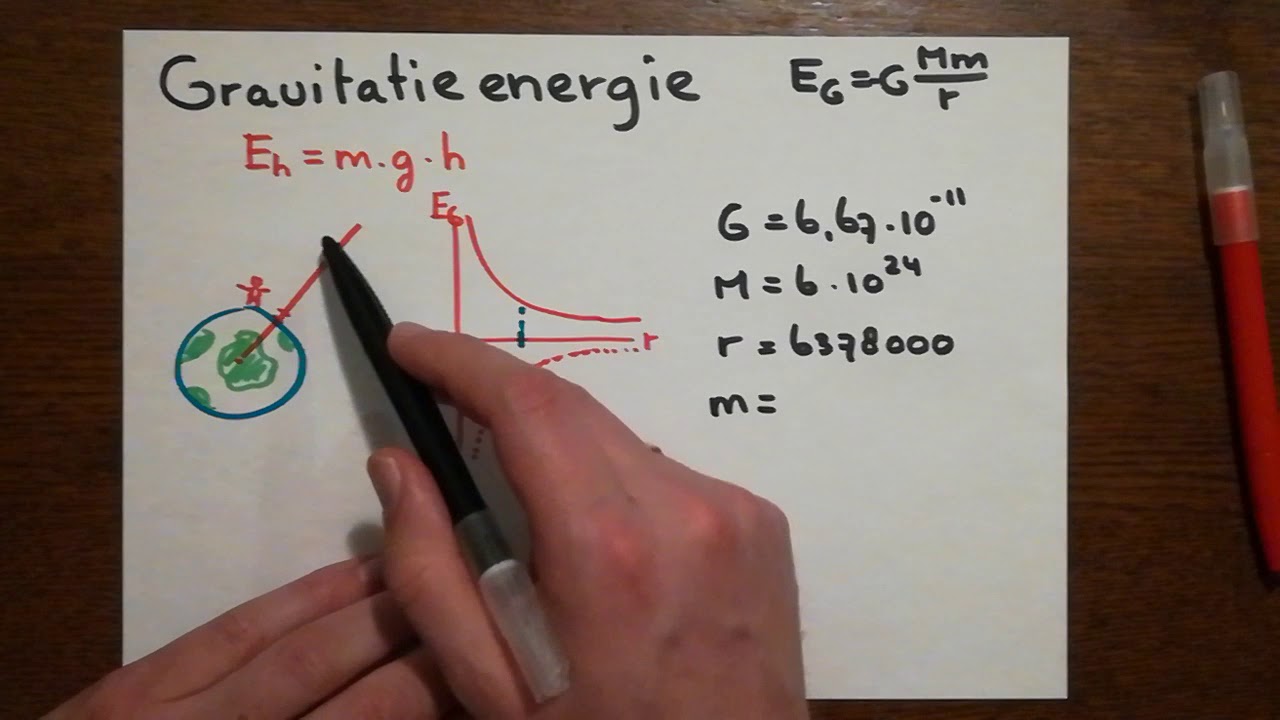 Gravitatie energie
E_G = -G Mm/r
E_h = m.g.h
E_G
r
G = 6,67.10^-11
M = 6.10^24
r = 6378000
m =